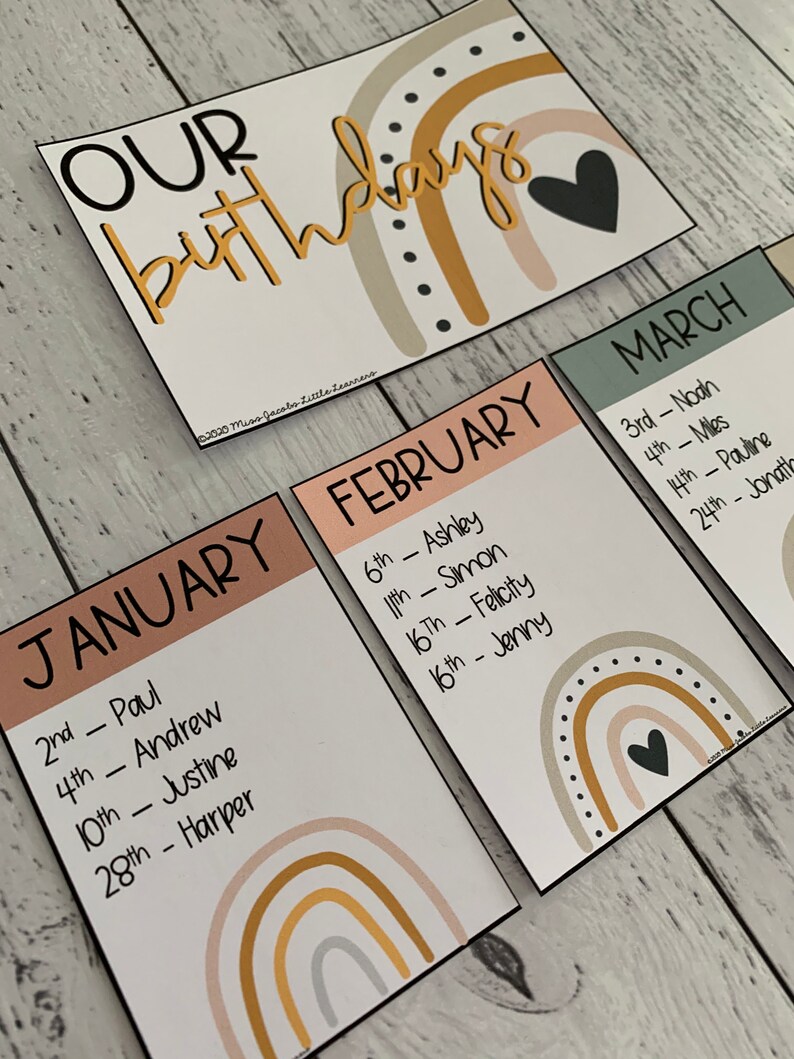 OUR
birthdays
©2020 Miss Jacobs Little Learners
JANUARY
2nd – Paul
4th – Andrew
10th – Justine
28th - Harper
FEBRUARY
6th – Ashley
11th – Simon
16Th – Felicity
16th - Jenny
©2020 Miss Jacobs Little Learners
MARCH
3rd – Noah
4th – Miles
14th – Pauline
24th – Jonath